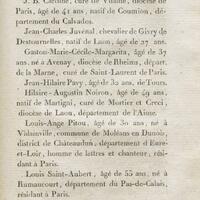 J. B. Cardine, curé de Vilaine, diocèse de
Paris, âgé de 41 ans, natif de Coumion, dé-
partement du Calvados.
Jean-Charles Juvénal, chevalier de Givry de
Destournelles, natif de Laon, âgé de 27 ans.
Gaston-Marie-Cécile-Margarita, âgé de 37
ans, né à Avenay, diocèse de Rheims, départ.
de la Marne, curé de Saint-Laurent de Paris.
Jean-Hilaire Pavy, âgé de 32 ans, de Tours.
Hilaire-Augustin Noiron, âgé de 49 ans,
natif de Martigni, curé de Mortier et Creci,
diocèse de Laon, département de l'Aisne.
Louis-Ange Pitou, âgé de 30 ans, né à
Vidainville, commune de Moléans en Dunois,
district de Châteaudun, département d'Eure-
et-Loir, homme de lettres et chanteur, rési-
dant à Paris.
Louis Saint-Aubert, âgé de 55 ans, né à
Rumaucourt, département du Pas-de-Calais,
résidant à Paris.